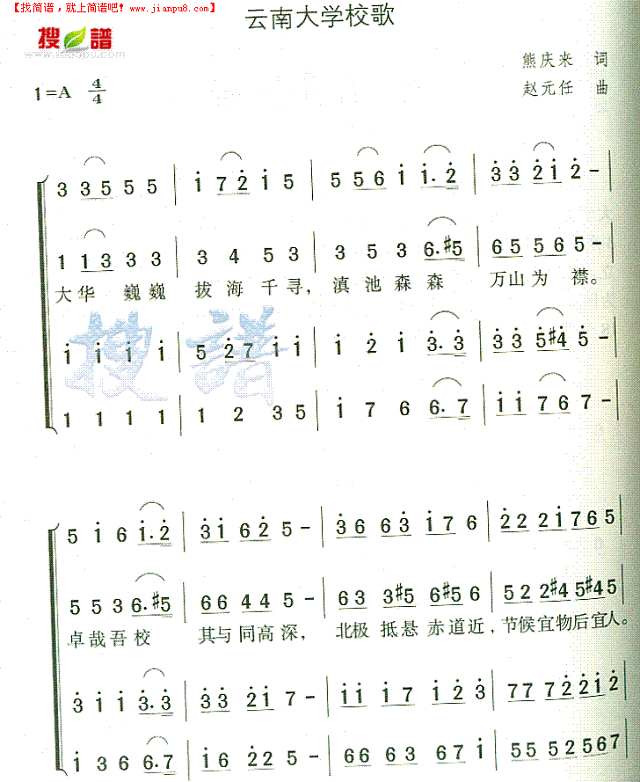 【找简谱，就上简谱吧！www.jianpu8.com】
云南大学校歌
搜谱
www.sooopu.com
熊庆来 词
1=A 4/4
赵元任 曲
3 3 5 5 5 | i 7 2 i 5 | 5 5 6 i i. 2 | 3 3 2 i 2 –
1 1 3 3 3 | 3 4 5 3 | 3 5 3 6. #5 | 6 5 5 6 5 –
大华 巍巍 拔海千寻，滇池森森 万山为 襟。
i i i i | 5 2 7 i i | i 2 i 3. 3 | 3 3 5 #4 5 –
搜谱
1 1 1 1 | 1 2 3 5 | i 7 6 6. 7 | i i 7 6 7 –
5 i 6 i. 2 | 3 i 6 2 5 – | 3 6 6 3 i 7 6 | 2 2 2 i 7 6 5
5 5 3 6. #5 | 6 6 4 4 5 – | 6 3 3 #5 6 #5 6 | 5 2 2 #4 5 #4 5
卓哉吾校 其与同高深，北极 抵悬 赤道近，节候宜物后宜人。
3 i i 3. 3 | 3 3 2 i 7 – | i i i 7 i 2 3 | 7 7 7 2 2 i 2
i 3 6 6. 7 | i 6 2 2 5 – | 6 6 6 3 6 7 i | 5 5 5 2 5 6 7